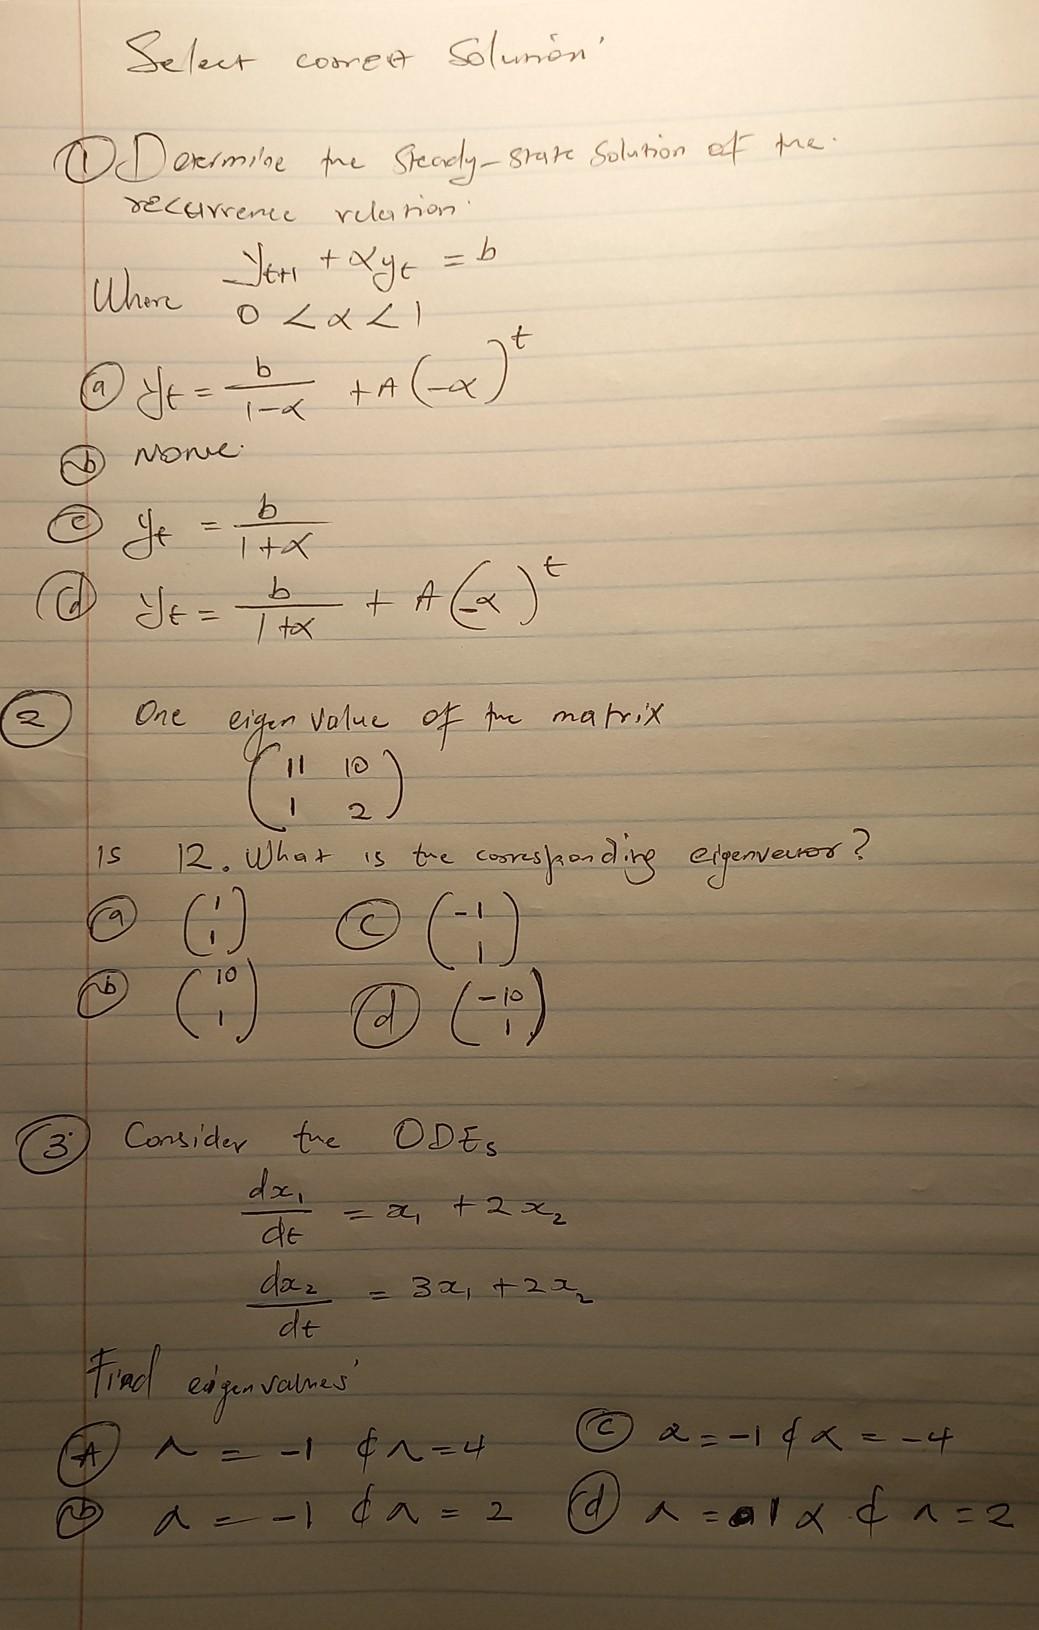 Select correct Solution
① Determine the Steady-state Solution of the
recurrence relation
y_{t+1} + αy_t = b
Where 0 < α < 1
ⓐ y_t = b/(1-α) + A(-α)^t
ⓑ None.
ⓒ y_t = b/(1+α)
ⓓ y_t = b/(1+α) + A(-α)^t
② One eigen value of the matrix
(11 10
1 2)
is 12. What is the corresponding eigenvector?
ⓐ (1 1) ⓒ (-1 1)
ⓑ (10 1) ⓓ (-10 1)
③ Consider the ODEs
dx₁/dt = x₁ + 2x₂
dx₂/dt = 3x₁ + 2x₂
Find eigenvalues
Ⓐ λ = -1 & λ = 4 ⓒ λ = -1 & λ = -4
ⓑ λ = -1 & λ = 2 ⓓ λ = 1 & λ = 2